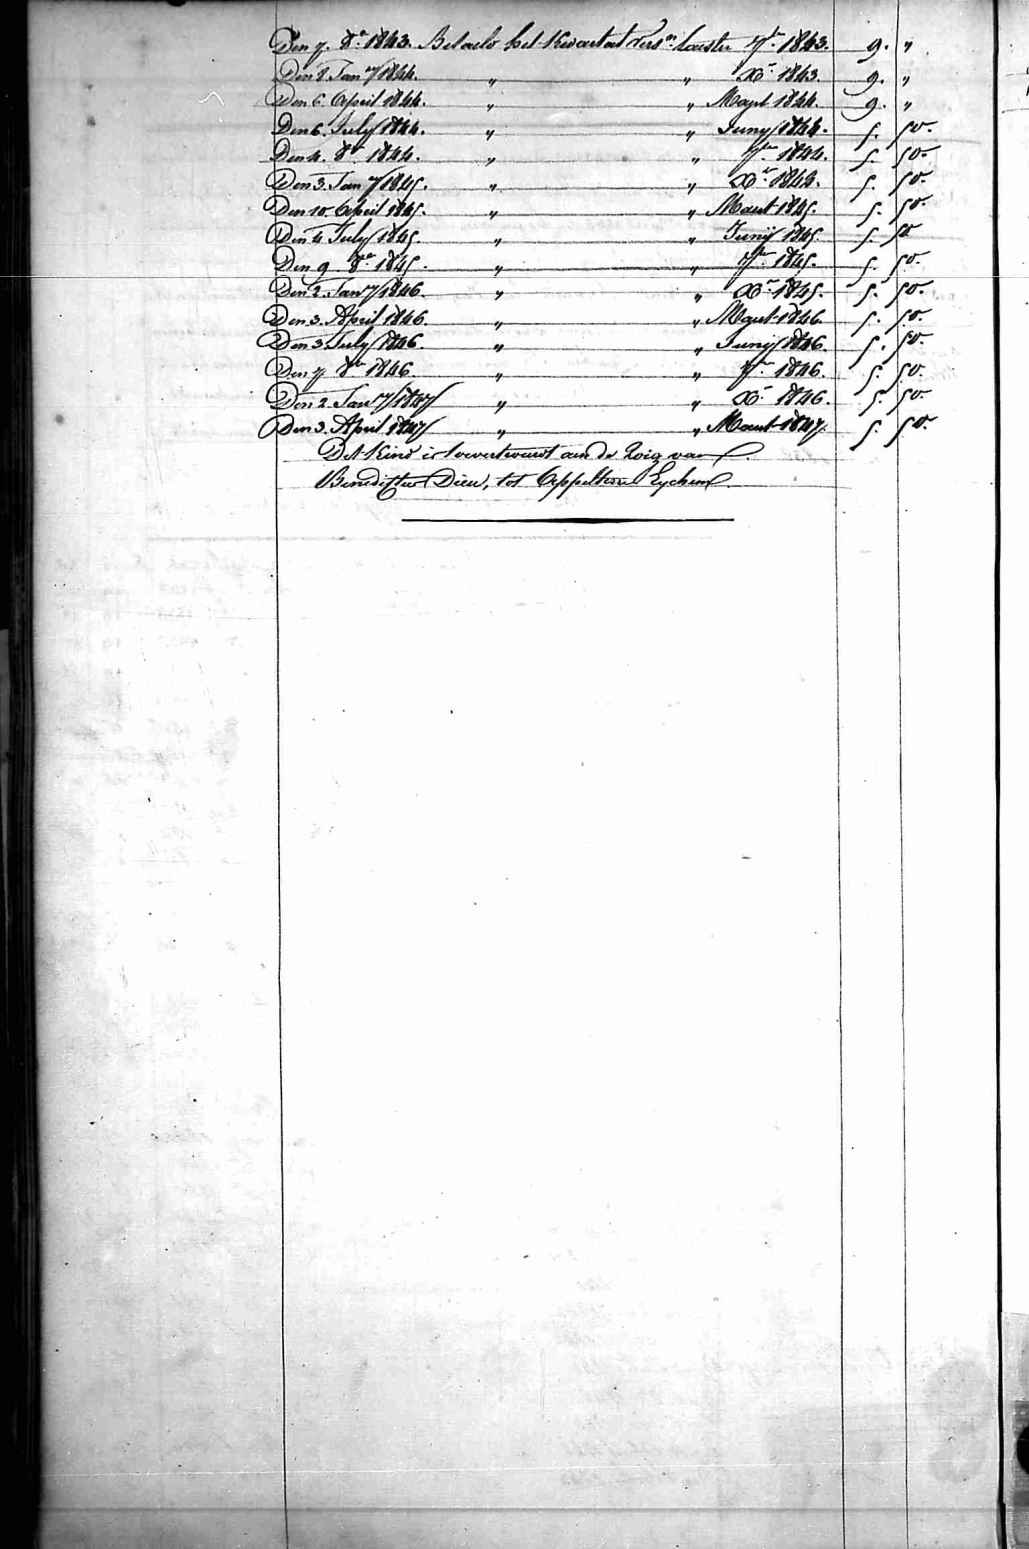 Den 7. 8er 1843. Betaeld het Kwartael versn laesten 7er 1843. 9. "
Den 8. Jany 1844. " " Xr 1843. 9. "
Den 6. April 1844. " " Maert 1844. 9. "
Den 6. July 1844. " " Juny 1844. 5. 50.
Den 4. 8er 1844. " " 7er 1844. 5. 50.
Den 3. Jany 1845. " " Xr 1844. 5. 50.
Den 10. April 1845. " " Maert 1845. 5. 50.
Den 4. July 1845. " " Junij 1845. 5. 50
Den 9. 8er 1845. " " 7er 1845. 5. 50.
Den 2. Jany 1846. " " Xr 1845. 5. 50.
Den 3. April 1846. " " Maert 1846. 5. 50.
Den 3. July 1846. " " Junij 1846. 5. 50.
Den 7. 8er 1846. " " 7er 1846. 5. 50.
Den 2. Jany 1847 " " Xr 1846. 5. 50.
Den 3. April 1847 " " Maert 1847. 5. 50.
Dit Kind is toevertrouwt aen de Zorg van
Benedictus Dieu, tot Appelterre Eychem.